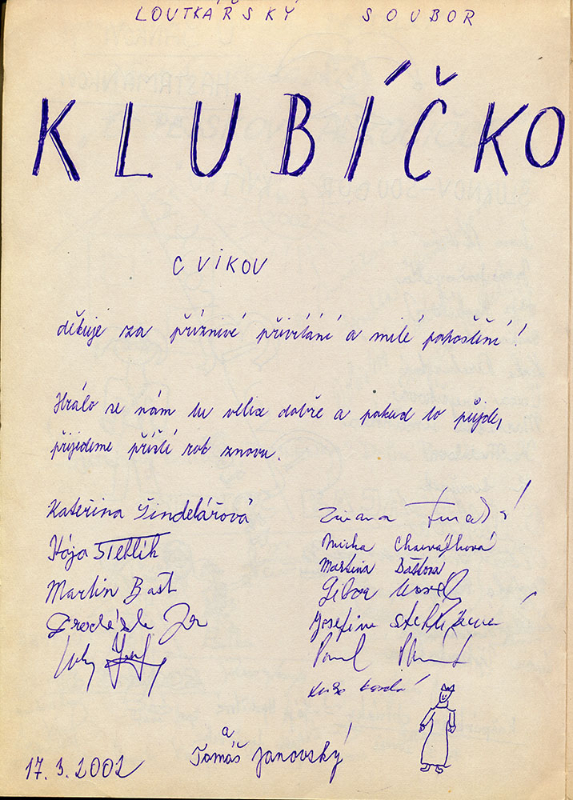 LOUTKÁŘSKÝ SOUBOR
KLUBÍČKO
CVIKOV
děkuje za příznivé přivítání a milé pohoštění!
Hrálo se nám tu velice dobře a pokud to půjde,
přijedeme příští rok znovu.
Kateřina Šindelářová
Zuzana
Hója Stehlík
Mírka
Martin Bašt
Martina Baštová
Libor
Josefína
Pavel
a
Tomáš Janovský
17.3.2002